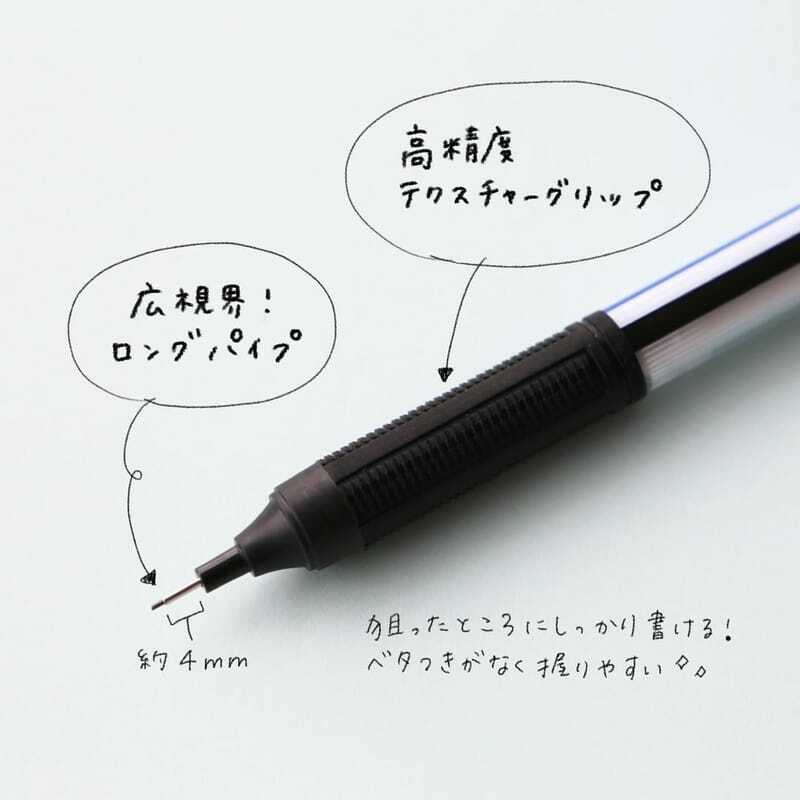 高精度
テクスチャーグリップ
広視界!
ロングパイプ
約4mm
狙ったところにしっかり書ける!
ベタつきがなく握りやすい